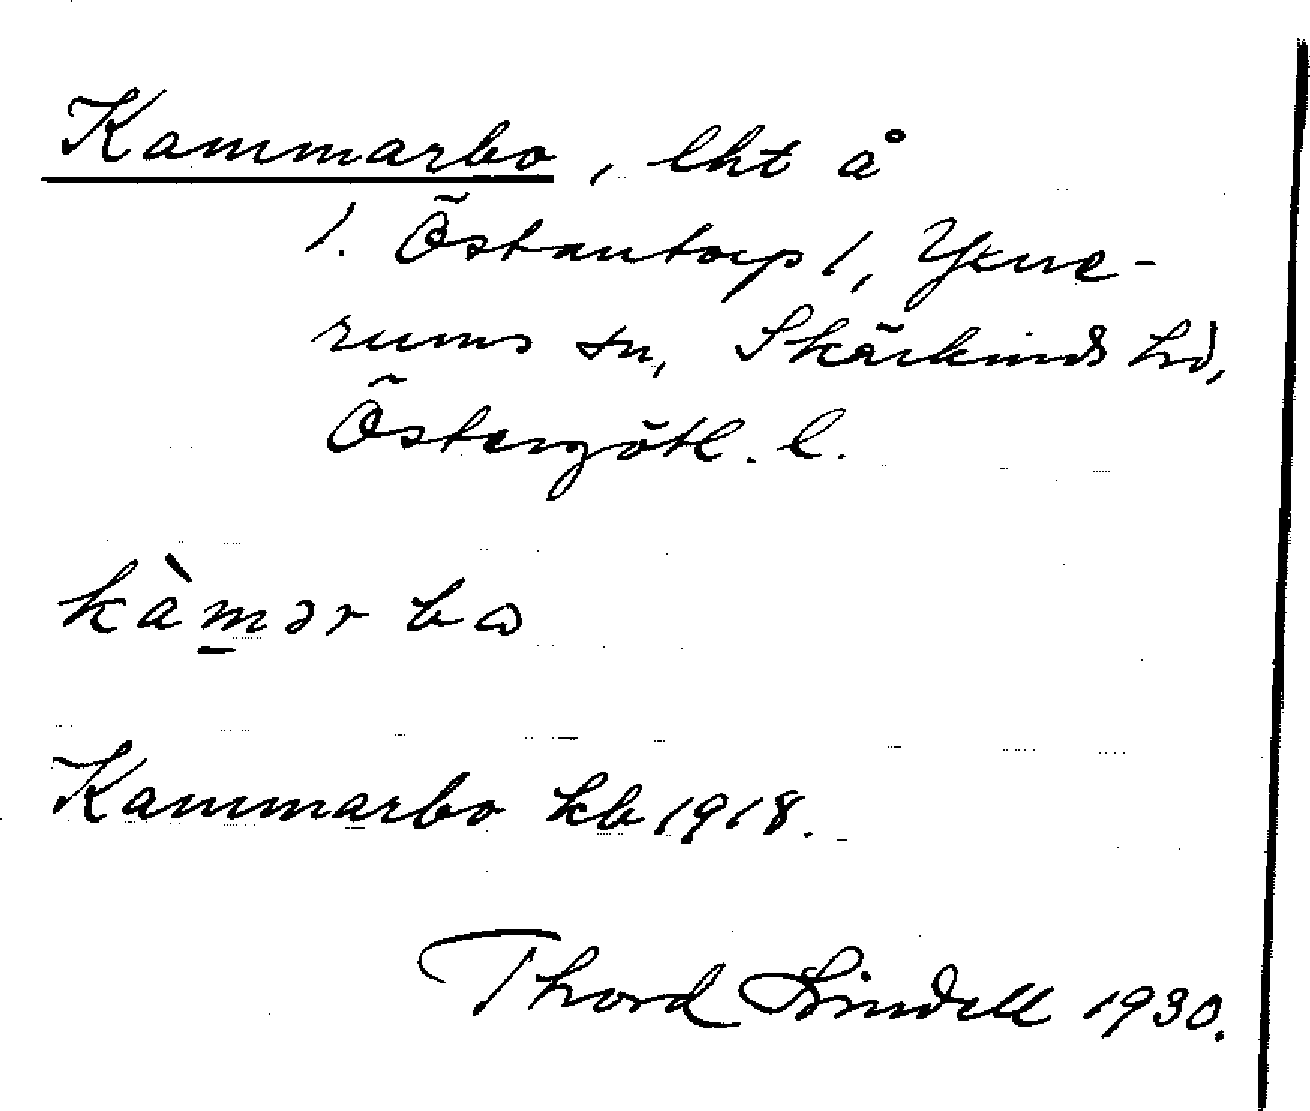 Kammarbo, lht å
1. Östantorp 1, Yxne-
rums sn, Skärkinds hd,
Östergötl. l.
kàmər bω
Kammarbo kb 1918.
Thord Lindell 1930.